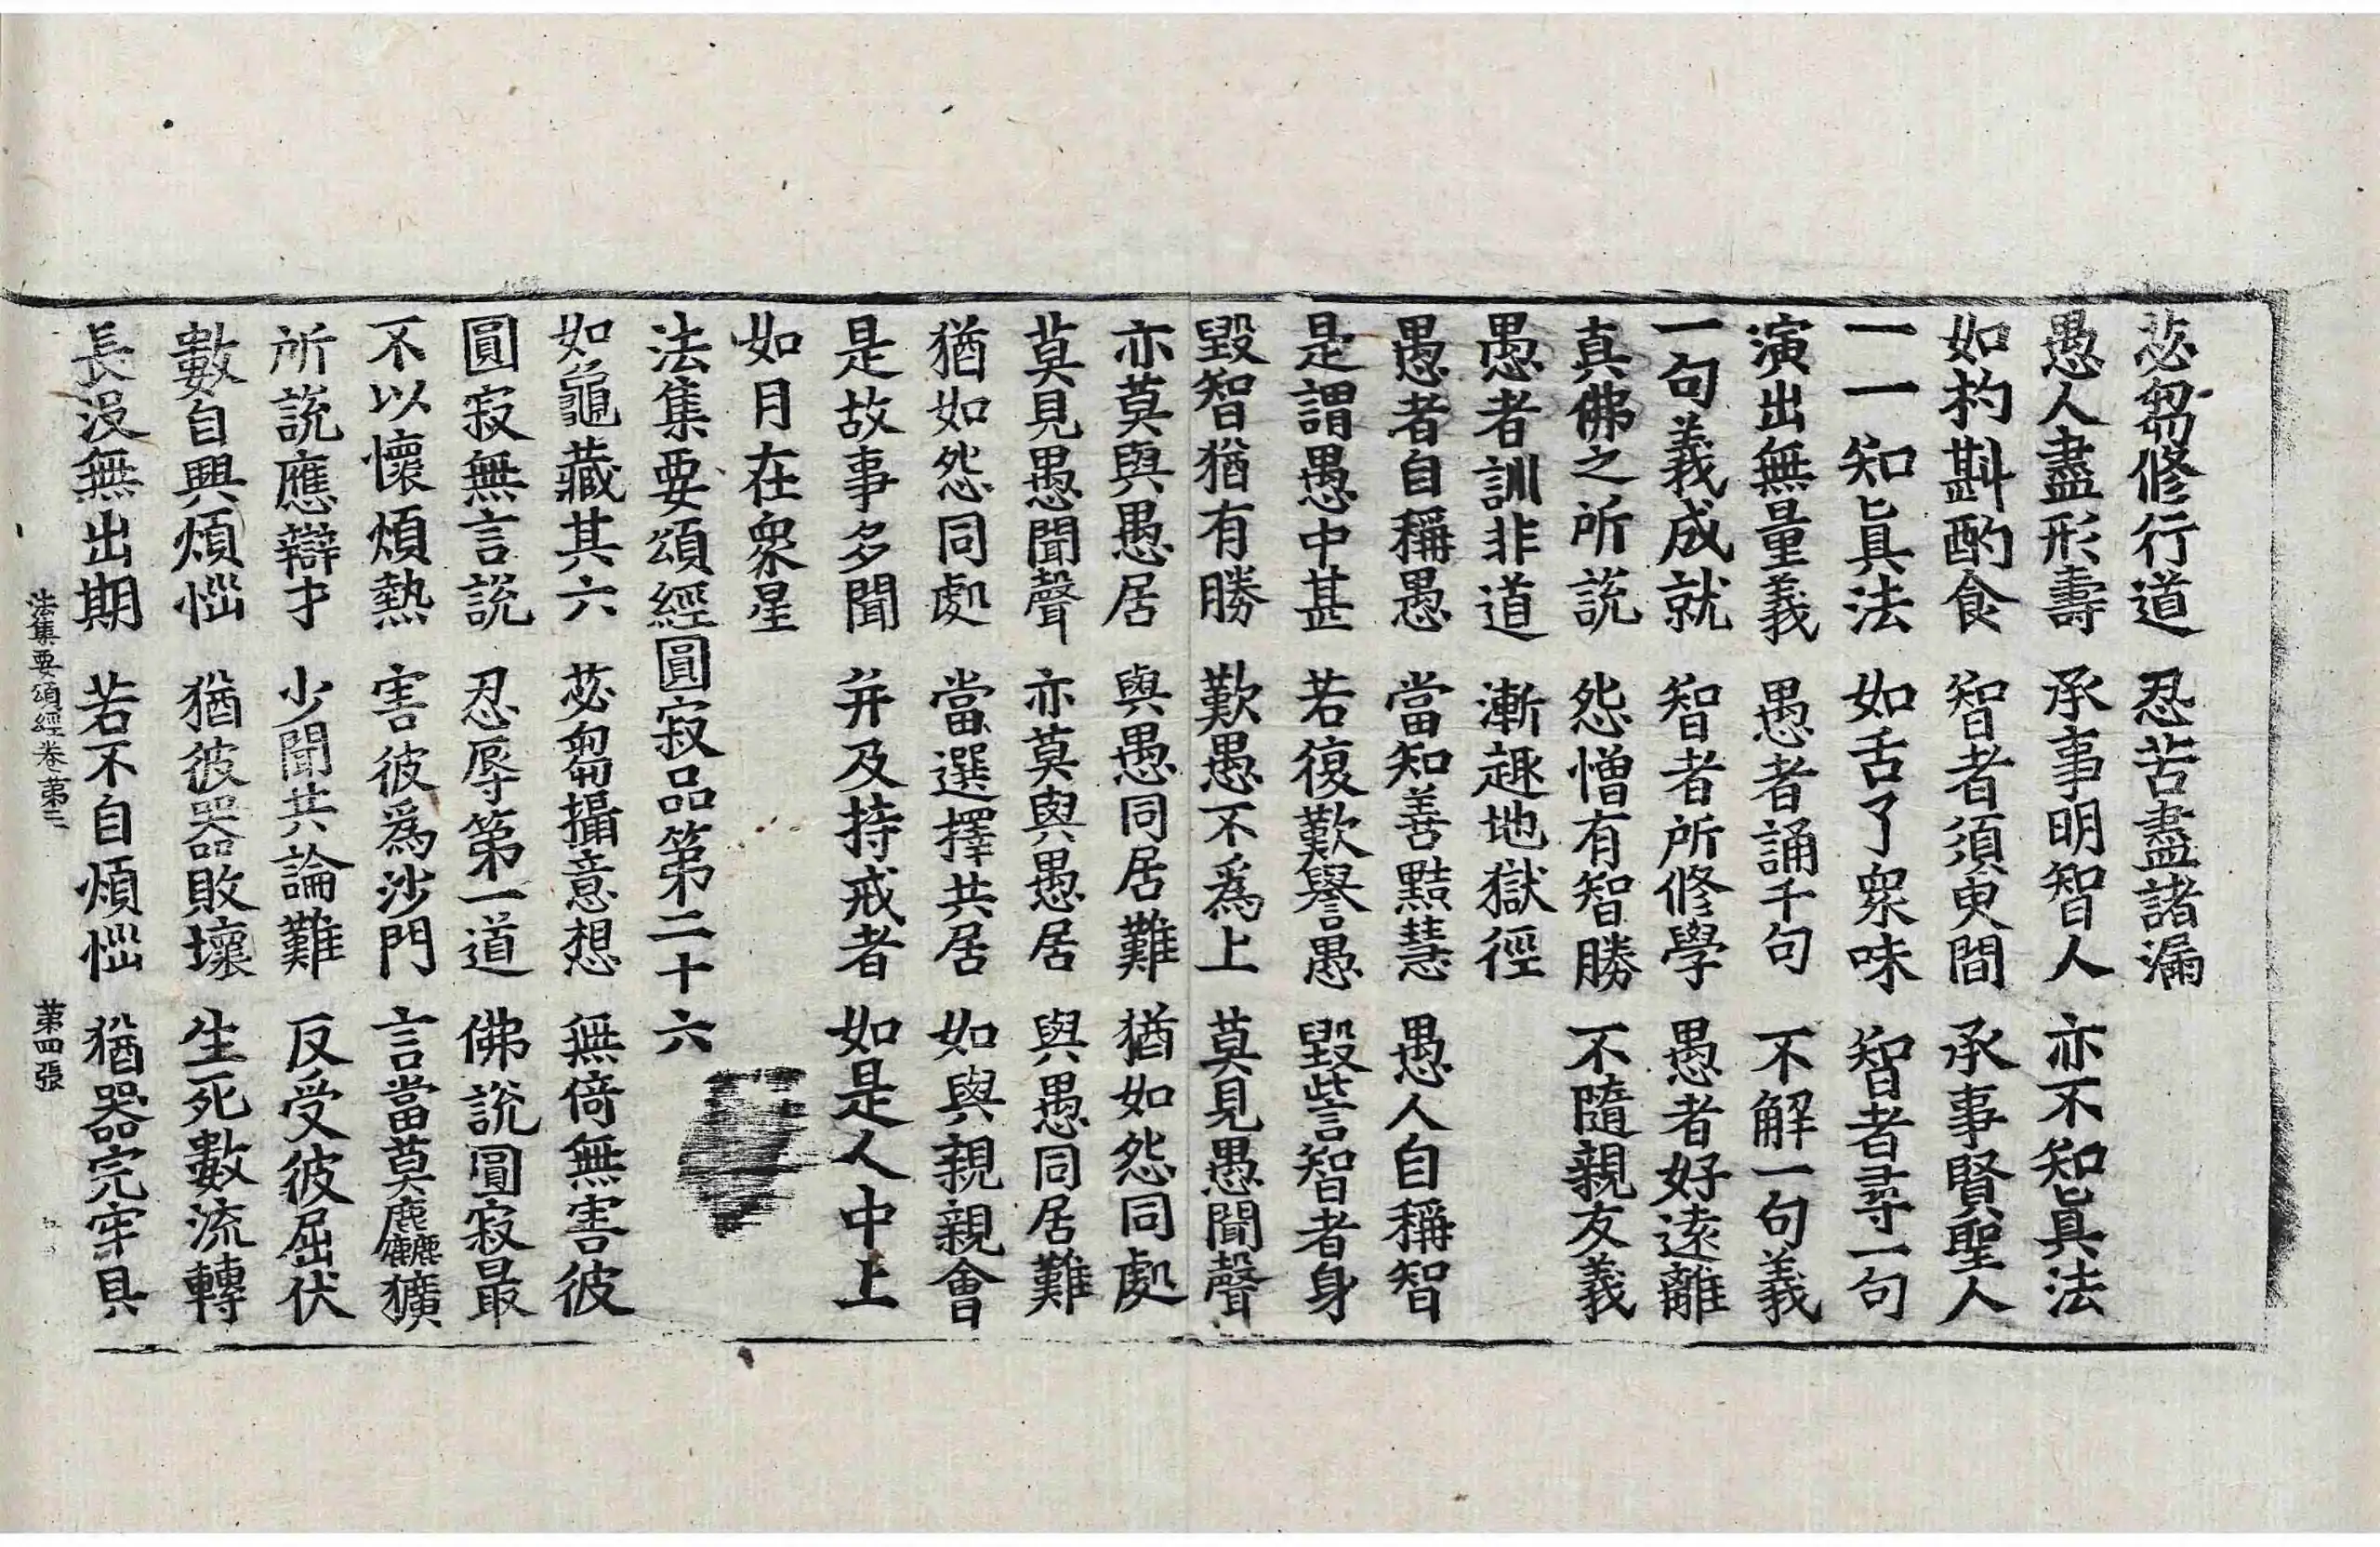 苾芻修行道　忍苦盡諸漏
愚人盡形壽　承事明智人　亦不知眞法
如杓斟酌食　智者須臾間　承事賢聖人
一一知眞法　如舌了衆味　智者尋一句
演出無量義　愚者誦千句　不解一句義
一句義成就　智者所修學　愚者好遠離
真佛之所說　怨憎有智勝　不隨親友義
愚者訓非道　漸趣地獄徑
愚者自稱愚　當知善黠慧　愚人自稱智
是謂愚中甚　若復歎譽愚　毀訾智者身
毀智猶有勝　歎愚不爲上　莫見愚聞聲
亦莫與愚居　與愚同居難　猶如怨同處
莫見愚聞聲　亦莫與愚居　與愚同居難
猶如怨同處　當選擇共居　如與親親會
是故事多聞　并及持戒者　如是人中上
如月在衆星
法集要頌經圓寂品第二十六
如龜藏其六　苾芻攝意想　無倚無害彼
圓寂無言說　忍辱第一道　佛說圓寂最
不以懷煩熱　害彼爲沙門　言當莫麤獷
所說應辯才　少聞共論難　反受彼屈伏
數自興煩惱　猶彼器敗壞　生死數流轉
長沒無出期　若不自煩惱　猶器完牢具
法集要頌經卷苐三　苐四張